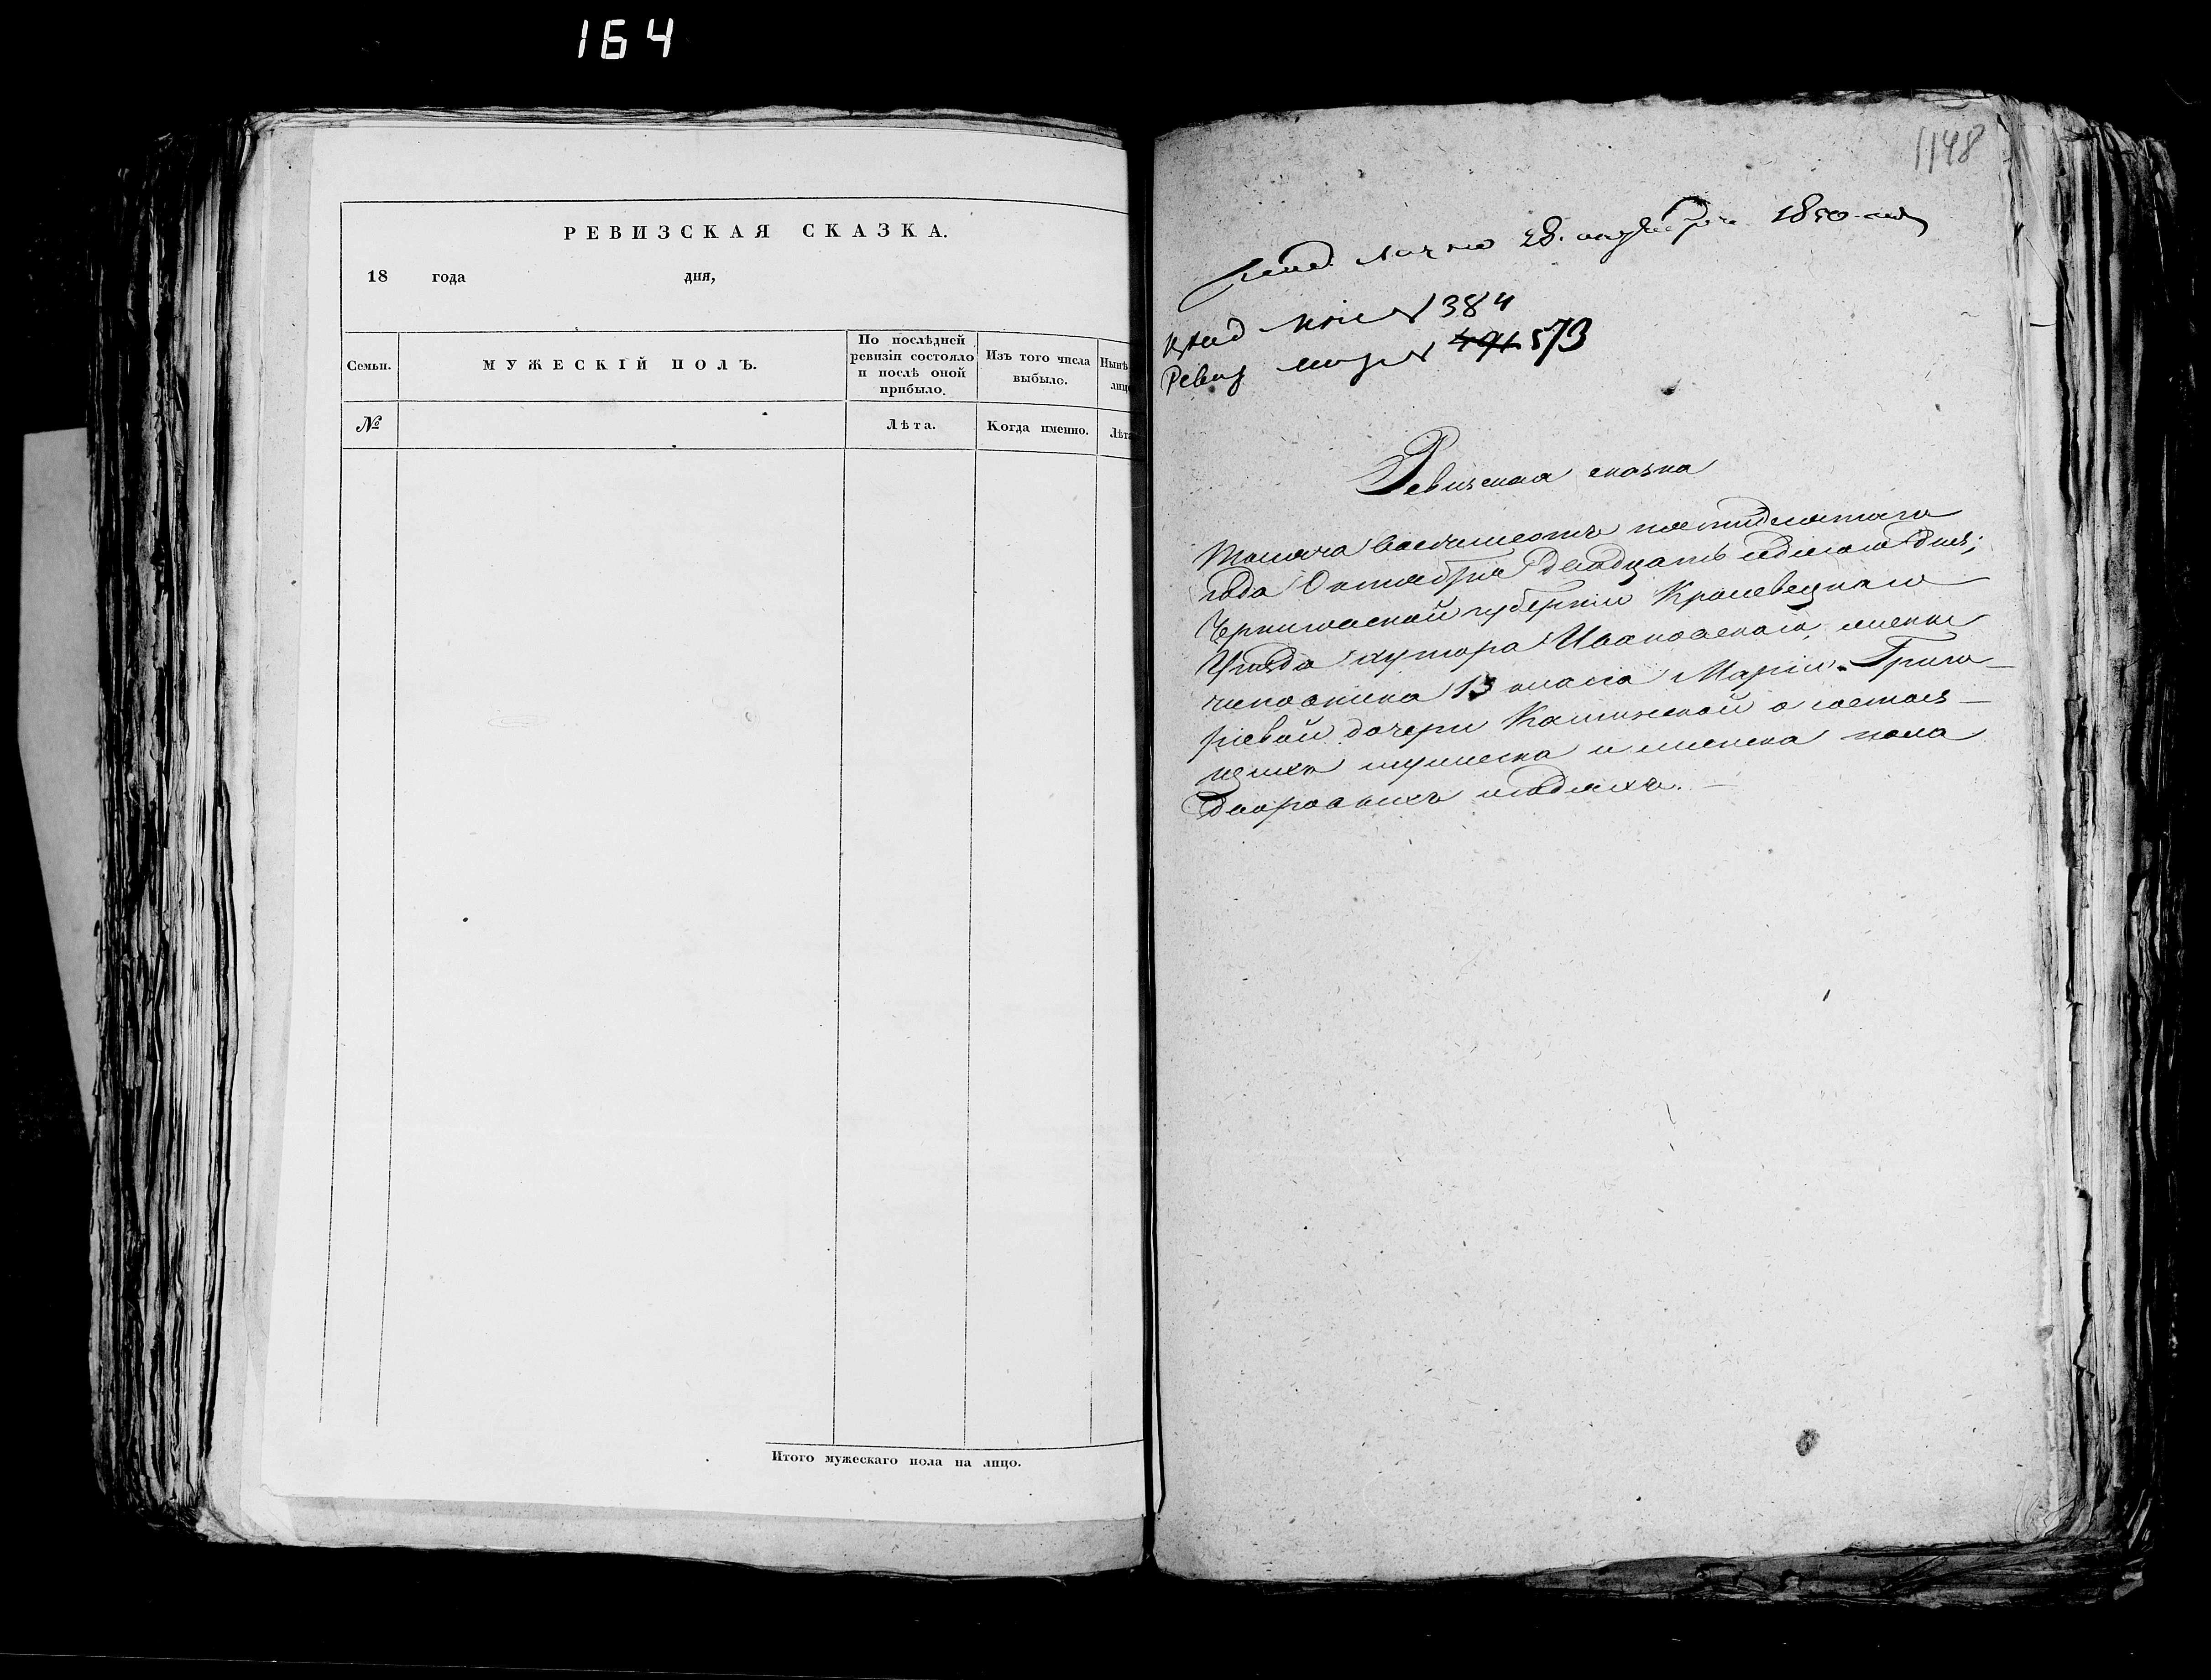 164
РЕВИЗСКАЯ СКАЗКА.
18 года дня,
Семьи.
МУЖЕСКІЙ ПОЛЪ.
По послѣдней
ревизіи состояло
и послѣ оной
прибыло.
Изъ того числа
выбыло.
Нынѣ
лицо
№
Лѣта.
Когда именно.
Лѣта
Итого мужескаго пола на лицо.
1148
лично 28. октября 1850
№ 384
491 573
Ревизская сказка
Тысяча восемьсотъ пятидесятаго
года Октября двадцать седьмаго дня;
Черниговской губерніи Кролевецкаго
Уѣзда хутора Ивановскаго, жены
чиновника 13 класса Маріи Григо-
рьевой дочери Каминской о состоя-
щихъ мужеска и женска пола
дворовыхъ людяхъ.